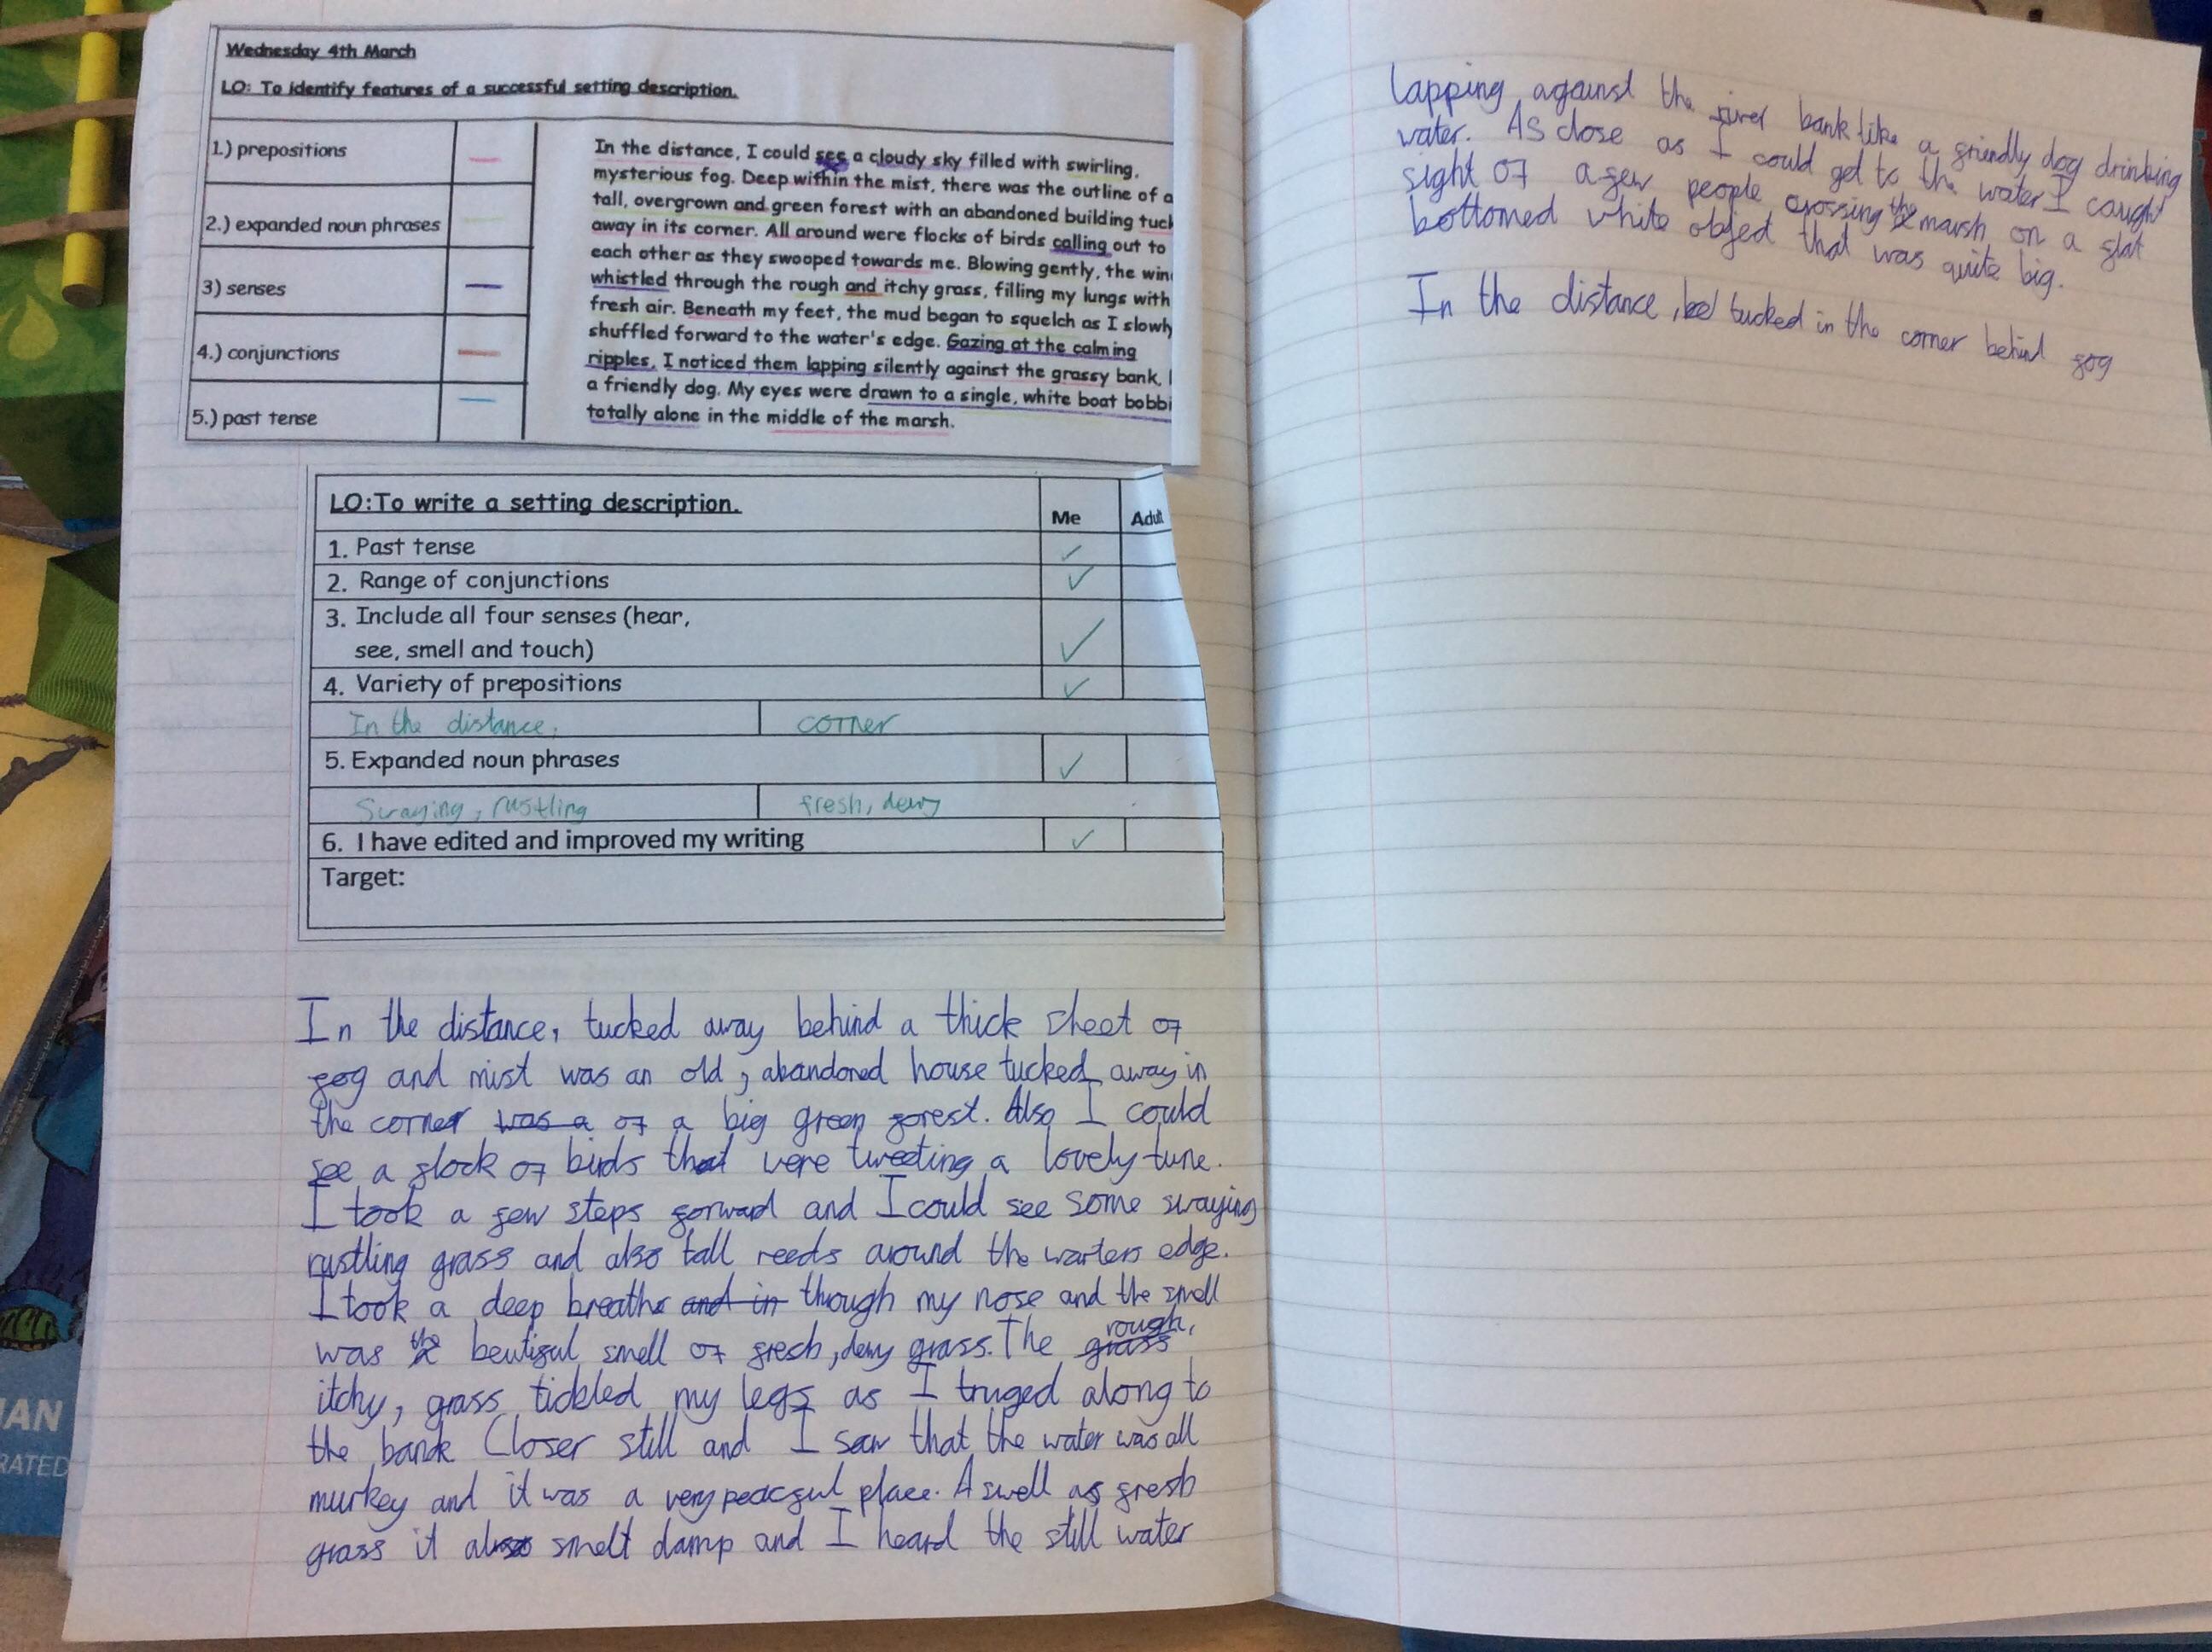 Wednesday 4th March
LO: To identify features of a successful setting description.
1.) prepositions
2.) expanded noun phrases
3) senses
4.) conjunctions
5.) past tense
In the distance, I could see a cloudy sky filled with swirling,
mysterious fog. Deep within the mist, there was the outline of a
tall, overgrown and green forest with an abandoned building tuck
away in its corner. All around were flocks of birds calling out to
each other as they swooped towards me. Blowing gently, the win
whistled through the rough and itchy grass, filling my lungs with
fresh air. Beneath my feet, the mud began to squelch as I slowly
shuffled forward to the water's edge. Gazing at the calming
ripples, I noticed them lapping silently against the grassy bank, l
a friendly dog. My eyes were drawn to a single, white boat bobbi
totally alone in the middle of the marsh.
LO:To write a setting description.
Me
Adult
1. Past tense
2. Range of conjunctions
3. Include all four senses (hear,
see, smell and touch)
4. Variety of prepositions
In the distance,
corner
5. Expanded noun phrases
Swaying, rustling
fresh, dewy
6. I have edited and improved my writing
Target:
In the distance, tucked away behind a thick sheet of
fog and mist was an old, abandoned house tucked away in
the corner was a of a big green forest. Also I could
see a flock of birds that were tweeting a lovely tune.
I took a few steps forward and I could see some swaying
rustling grass and also tall reeds around the warters edge.
I took a deep breath and in through my nose and the smell
was the beutiful smell of fresh, dewy grass. The grass rough,
itchy, grass tickled my legs as I truged along to
the bank Closer still and I saw that the water was all
murkey and it was a very peacful place. Aswell as fresh
grass it also smelt damp and I heard the still water
lapping against the river bank like a friendly dog drinking
water. As close as I could get to the water I caught
sight of a few people crossing the marsh on a flat
bottomed white object that was quite big.
In the distance, tucked in the corner behind fog
IAN
RATED